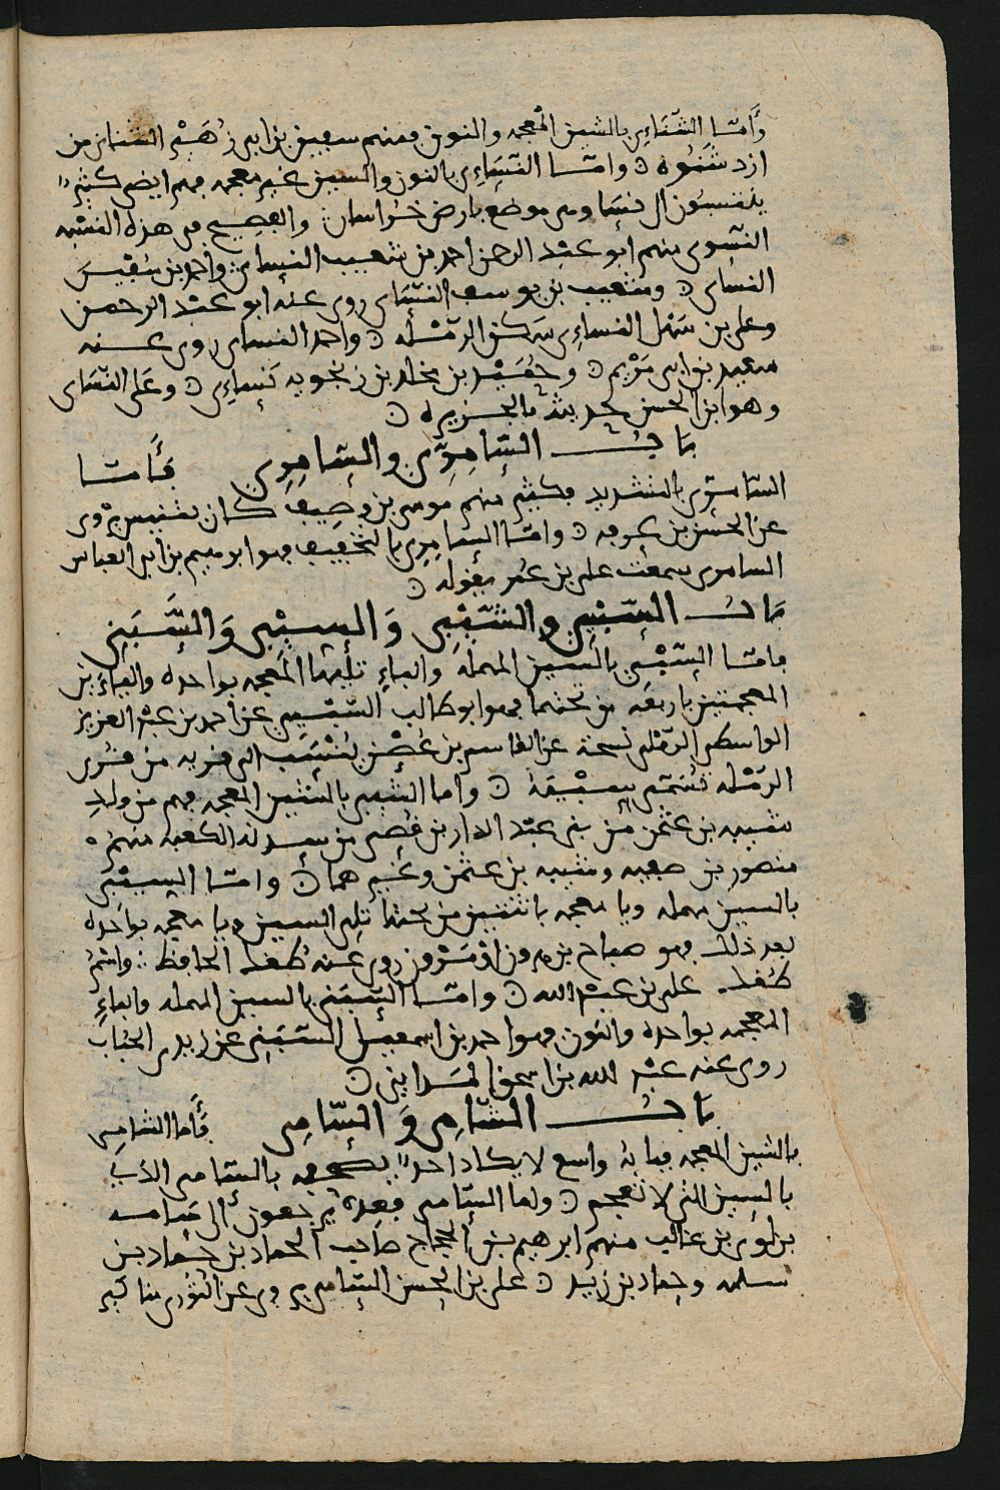 وَأَمَّا الشَّنَاءِي بالشين المعجمه والنون فمنهم سفين بن ابي زُهَيْر الشنائ من
ازد شَنُوه ٥ وامّا النَّسَاءِي بالنون والسين غير معجمه فهم ايضا كثير
ينتسبون الى نسَا وهى موضع بارض خُراسان والصحيح في هذه النسْبه
النسَوى منهم ابو عبْد الرحمن احمد بن شعيب النساى واحمد بن
النساى ٥ وشعيب بن يوسف النَّسَاى روى عنه ابو عبْد الرحمن
وعلى بن سَهْل النساءِى سَكن الرمْله ٥ واحد النساى روى عنه
سعيد بن ابى مَرْيم ٥ وحُمَيْد بن مخلد بن زنجويه نَساءِى ٥ وعَلى النسَاى
وهو ابن الحسن يحدث بالجزيره ٥
بَابُ السَّامِرِّى والسَّامِرِى فَأَمّا
السّامرّى بالتشديد فكثير منهم موسى بن وصيف كان بتنيس يروى
عن الحسن بن عرفه ٥ وامّا السامِرِى بالتخفيف فهو ابرهيم بن ابى العباس
السامرى سمعت على بن عمر يقوله ٥
بَابُ السَّبْيِي والشَّيْبِي وَالسيْبِي وَالسَّبَنِي
فامّا السَّبْيِي بالسين المهمله والباءِ تليها المعجمه بواحده والياءَين
المعجمتين باربعه من تحتهما فهو ابو طالب السَّبْيِي عن احمد بن عبْد العزيز
الواسطى الرمْلى نسخة عن القاسم بن غصْن يُنْسَب الى قريه من قُرى
الرمْله تُسَمّى سبْيَة ٥ واما الشيبى بالشين المعجمه فهم من ولدِ
شيبه بن عثمن من بنى عبْد الدار بن قُصي من سدنة الكعبه منهم
منصور بن صفيه وشيبه بن عثمن وغيرهما ٥ وامّا السيْبِى
بالسين مهمله ويا معجمه باثنتين من تحتها تلى السين وبا معجمه بواحده
بعد ذلك فهو صباح بن هرون ابو مَرْوان روى عنه كُغد الحافظ واسْمُ
كُغد على بن عبْد الله ٥ وامّا السَّبَنِى بالسين المهمله والباءِ
المعجمه بواحده والنون فهو احمد بن اسمعيل السَّبَنِى عن زيد بن الحبُاب
روى عنه عبْد الله بن اسحق المدايني ٥
بَابُ الشّامِى وَالسّامِى فَأَما الشامِى
بالشين المعجمه فبابه واسع لا يكاد احدٌ يصحفه بالسّامى الذى
بالسين التى لا تعجم ٥ واما السّامى فعِدّة يرجعون الى سَامه
بن لؤى بن غالب منهم ابرهيم بن الحجاج صَاحب الحماد بن حماد بن
سلمه وحماد بن زيد ٥ على بن الحسن السّامى يروى عن الثورى مناكير